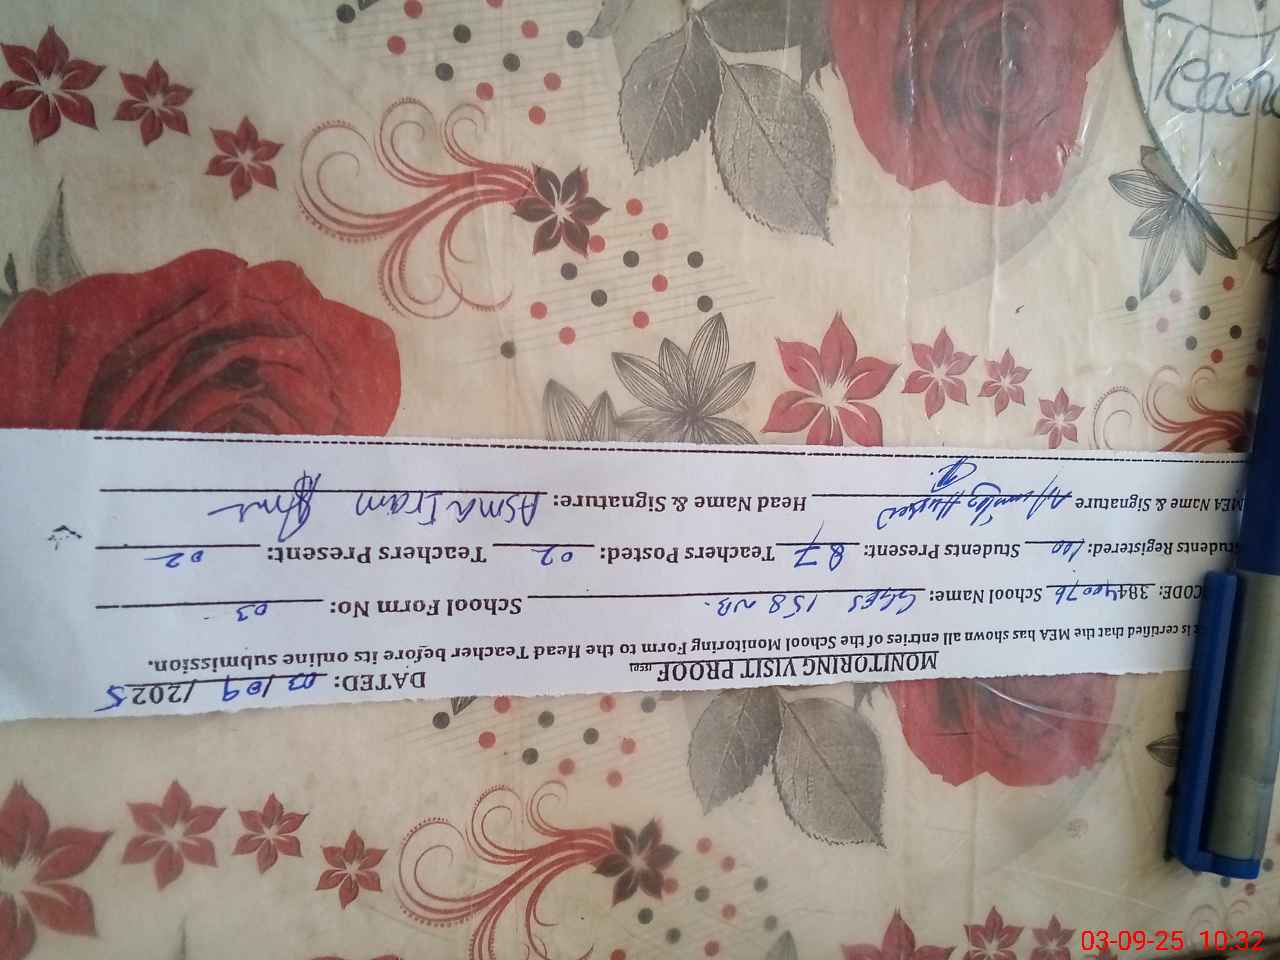 MONITORING VISIT PROOF DATED: 03/09/2025
is certified that the MEA has shown all entries of the School Monitoring Form to the Head Teacher before its online submission.
CODE: 38440076 School Name: GGES 158 NB. School Form No: 03
Students Registered: 100 Students Present: 87 Teachers Posted: 02 Teachers Present: 02
MEA Name & Signature Head Name & Signature: ASMA Iram
Teache
03-09-25 10:32